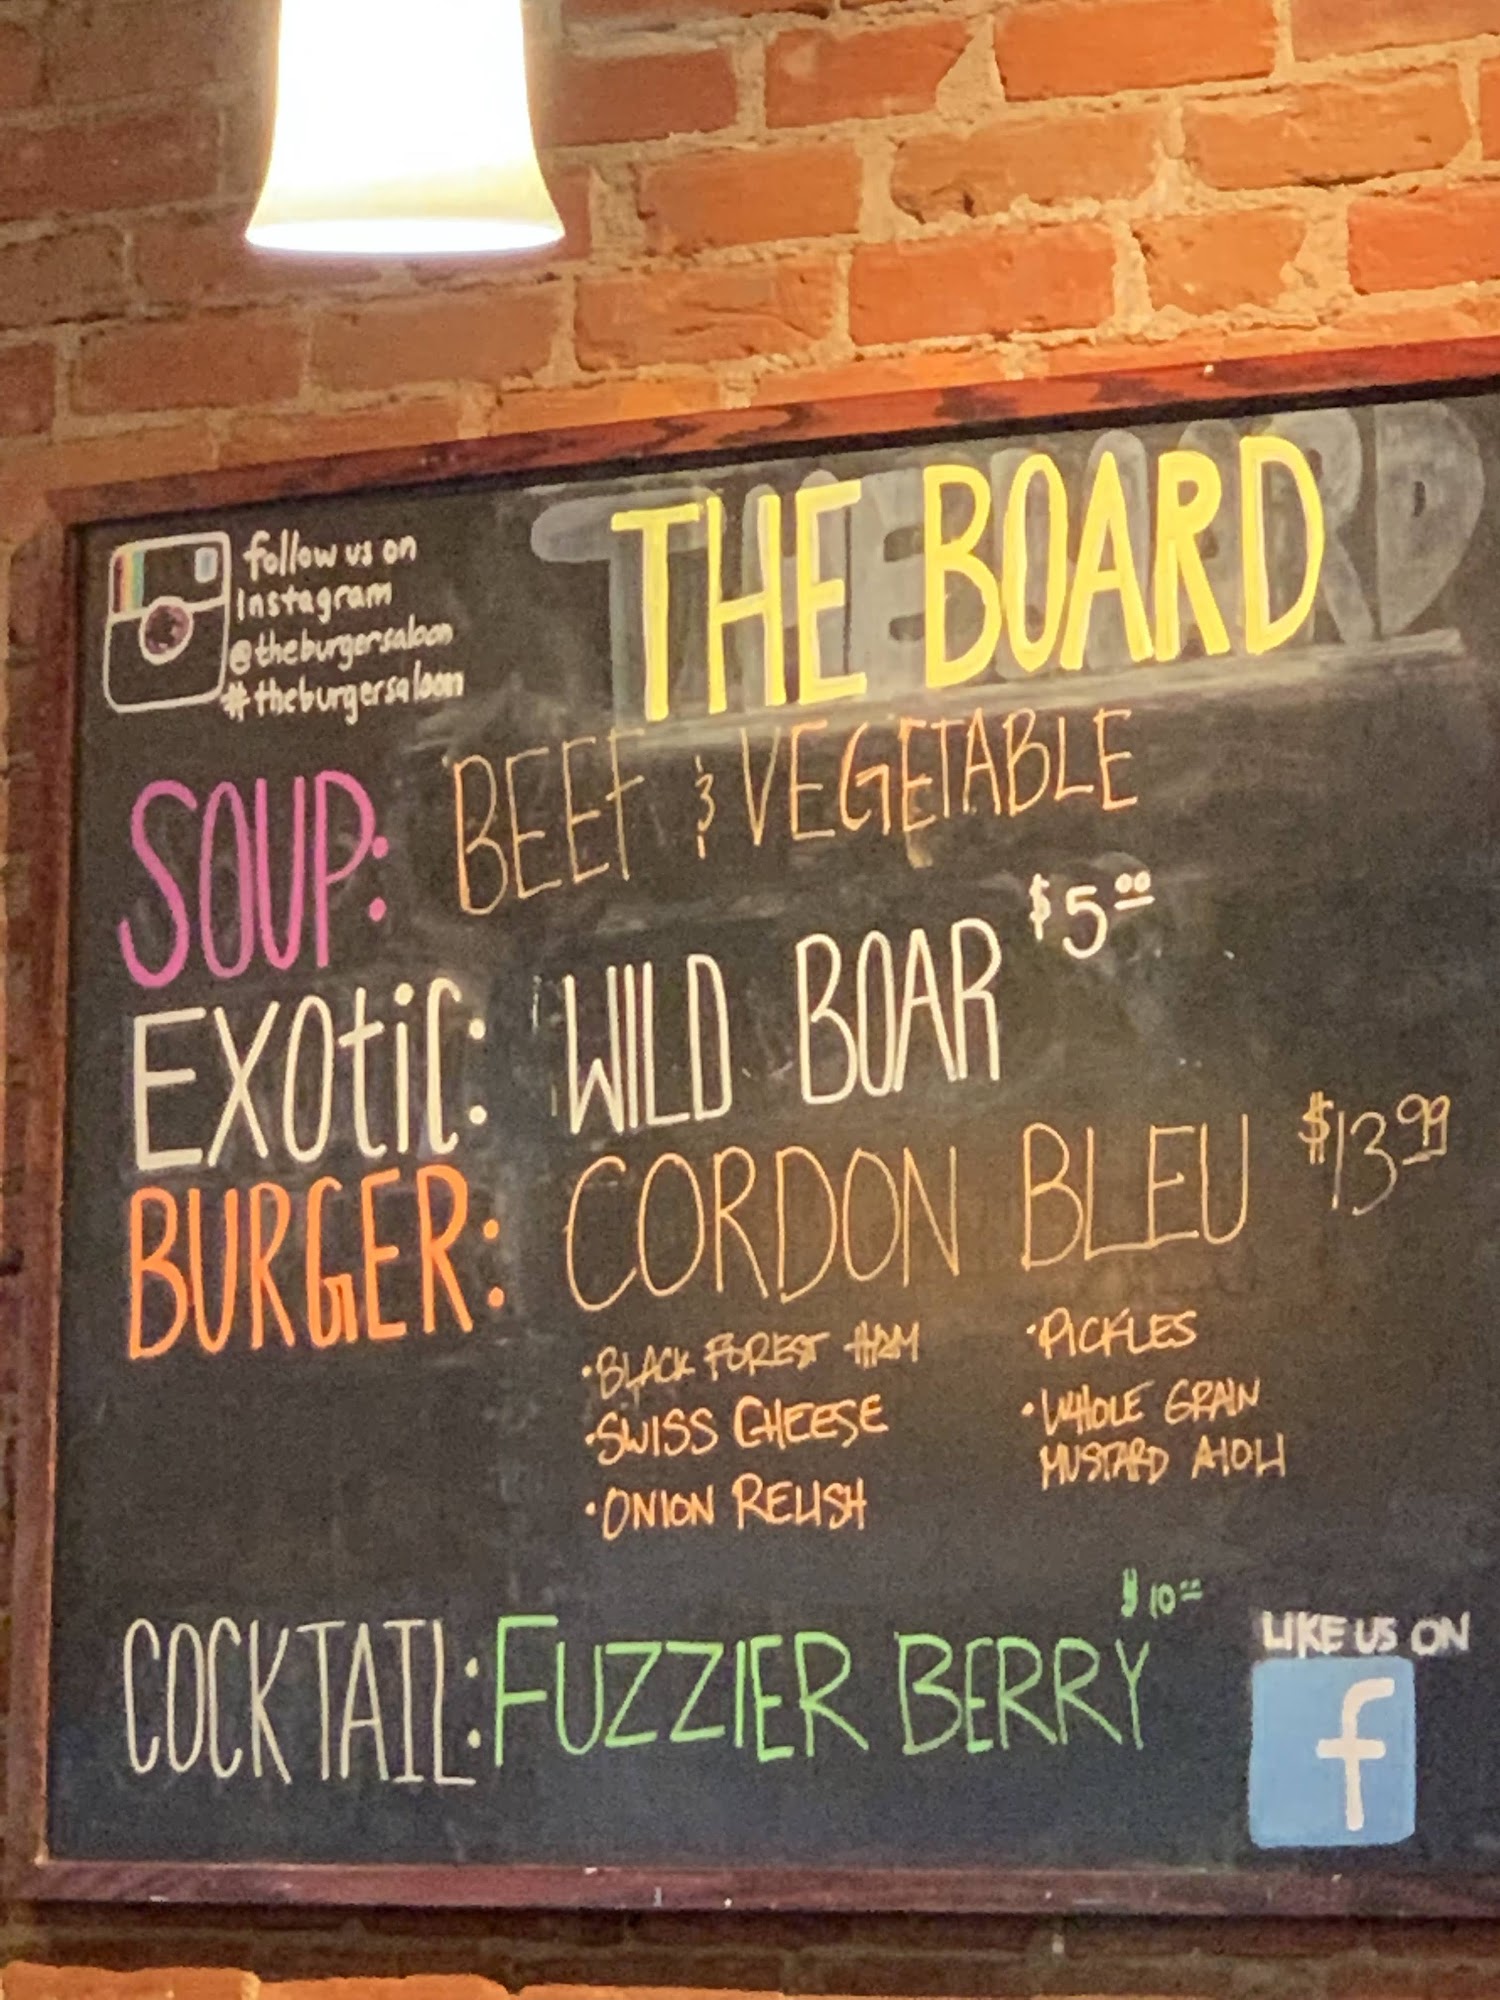 THE BOARD
follow us on
Instagram
@theburgersaloon
#theburgersaloon
SOUP: BEEF & VEGETABLE
EXOtiC: WILD BOAR $5.00
BURGER: CORDON BLEU $13.99
•BLACK FOREST HAM
•SWISS CHEESE
•ONION RELISH
•PICKLES
•WHOLE GRAIN
MUSTARD AIOLI
COCKTAIL: FUZZIER BERRY $10.00
LIKE US ON
f